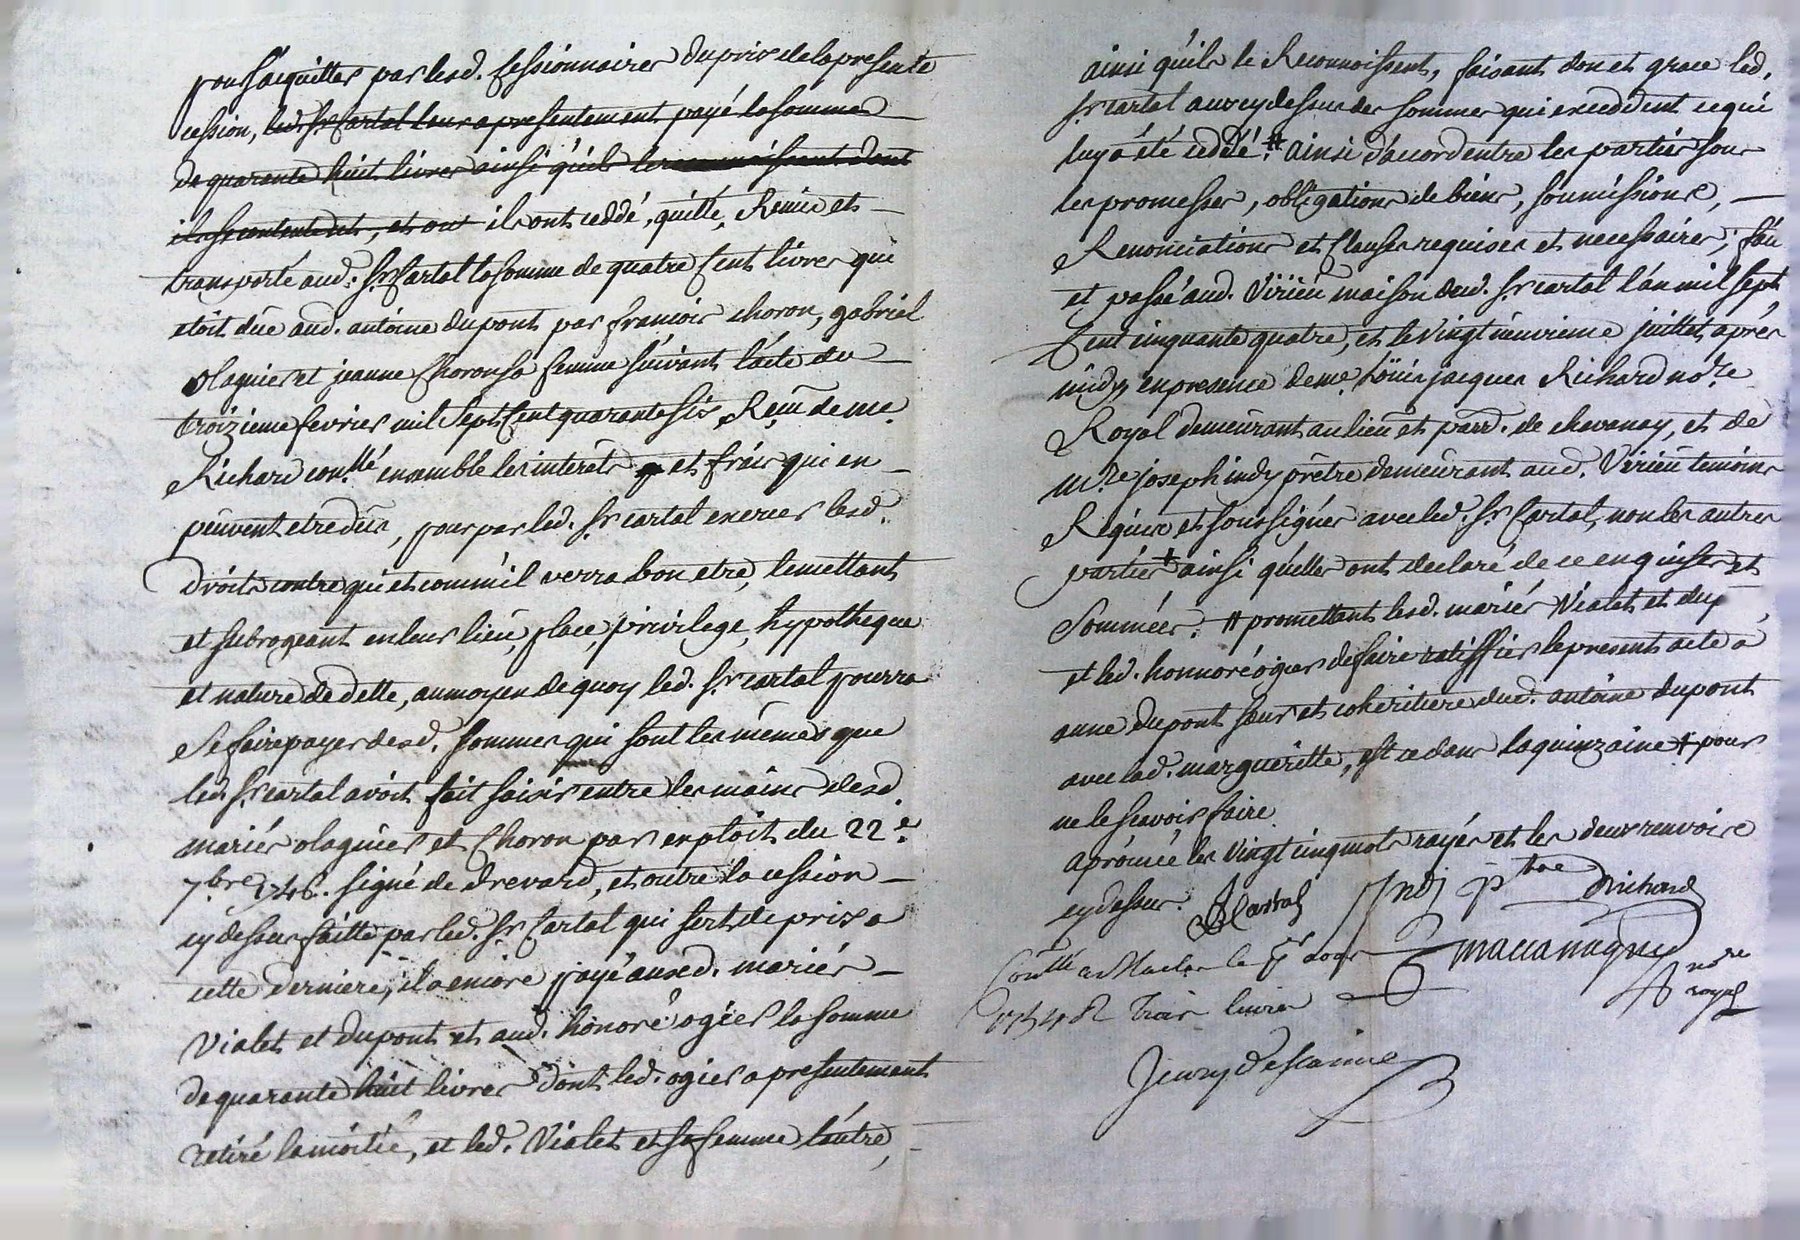 pour s'acquitter par lesd. Cessionnaires du prix de la presente
cession, led. Sr Cartal leur a presentement payé la somme
de quarante huit livres ainsi qu'ils le reconnoissent dont
ils se contentent, et ont ils ont ceddé, quitté, Remis et
transporté aud. Sr Cartal la somme de quatre Cent livres qui
etoit düe aud. antoine dupont par francois choron, gabriel
olagnier et jeanne Choron sa femme suivant l'acte du
troizieme fevrier mil sept Cent quarante six Reçu de me.
Richard con.llé ensemble les interets et frais qui en
peuvent etre dûs, pour par led. Sr cartal exercer lesd.
droits contre qui et comm'il verra bon etre, le mettant
et subrogeant en leur lieu, place, privilege, hypotheque
et nature de dette, au moyen de quoy led. Sr cartal pourra
se faire payer desd. sommes qui sont les mêmes que
led. Sr cartal avoit fait saisir entre les mains desd.
mariés olagnier et Choron par exploit du 22.e
7.bre 1746. signé de drevard, et outre la cession
cy dessus faitte par led. Sr Cartal qui sert de prix a
cette derniere, il a encore payé auxd. mariés
Vialet et dupont et aud. honoré ogier la somme
de quarante huit livres dont led. ogier a presentement
retiré la moitié, et led. Vialet et sa femme l'autre,
ainsi qu'ils le Reconnoissent, faisant don et grace led.
Sr cartal aux cy dessus des sommes qui exceddent ce qui
luy a été ceddé. # ainsi d'accord entre les parties sous
les promesses, obligations de biens, soumissions,
Renonciations et Clauses requises et necessaires, fait
et passé aud. Virieu maison dud. Sr cartal l'an mil sept
Cent cinquante quatre, et le vingt neuvieme juillet après
midy en presence de me. Loüis jacques Richard no.re
Royal demeurant au lieu et parr. de chavanay, et de
m.re joseph indy prêtre demeurant aud. Virieu temoins
Requis et soussignés avec led. Sr Cartal, non les autres
parties + ainsi qu'elles ont declaré de ce enquises et
Sommées. # promettant lesd. mariés Vialet et dup.
et led. honnoré ogier de faire ratiffier le present acte a
anne dupont sœur et coheritiere dud. antoine dupont
avec lad. margueritte, et ce dans la quinzaine + pour
ne le scavoir faire
aprouvé les vingt cinq mots rayés et les deux renvois
cy dessus. Cartal Indj ptre Richard
Con.llé a le 1er aout
1754 R trois livres
no.re
royal